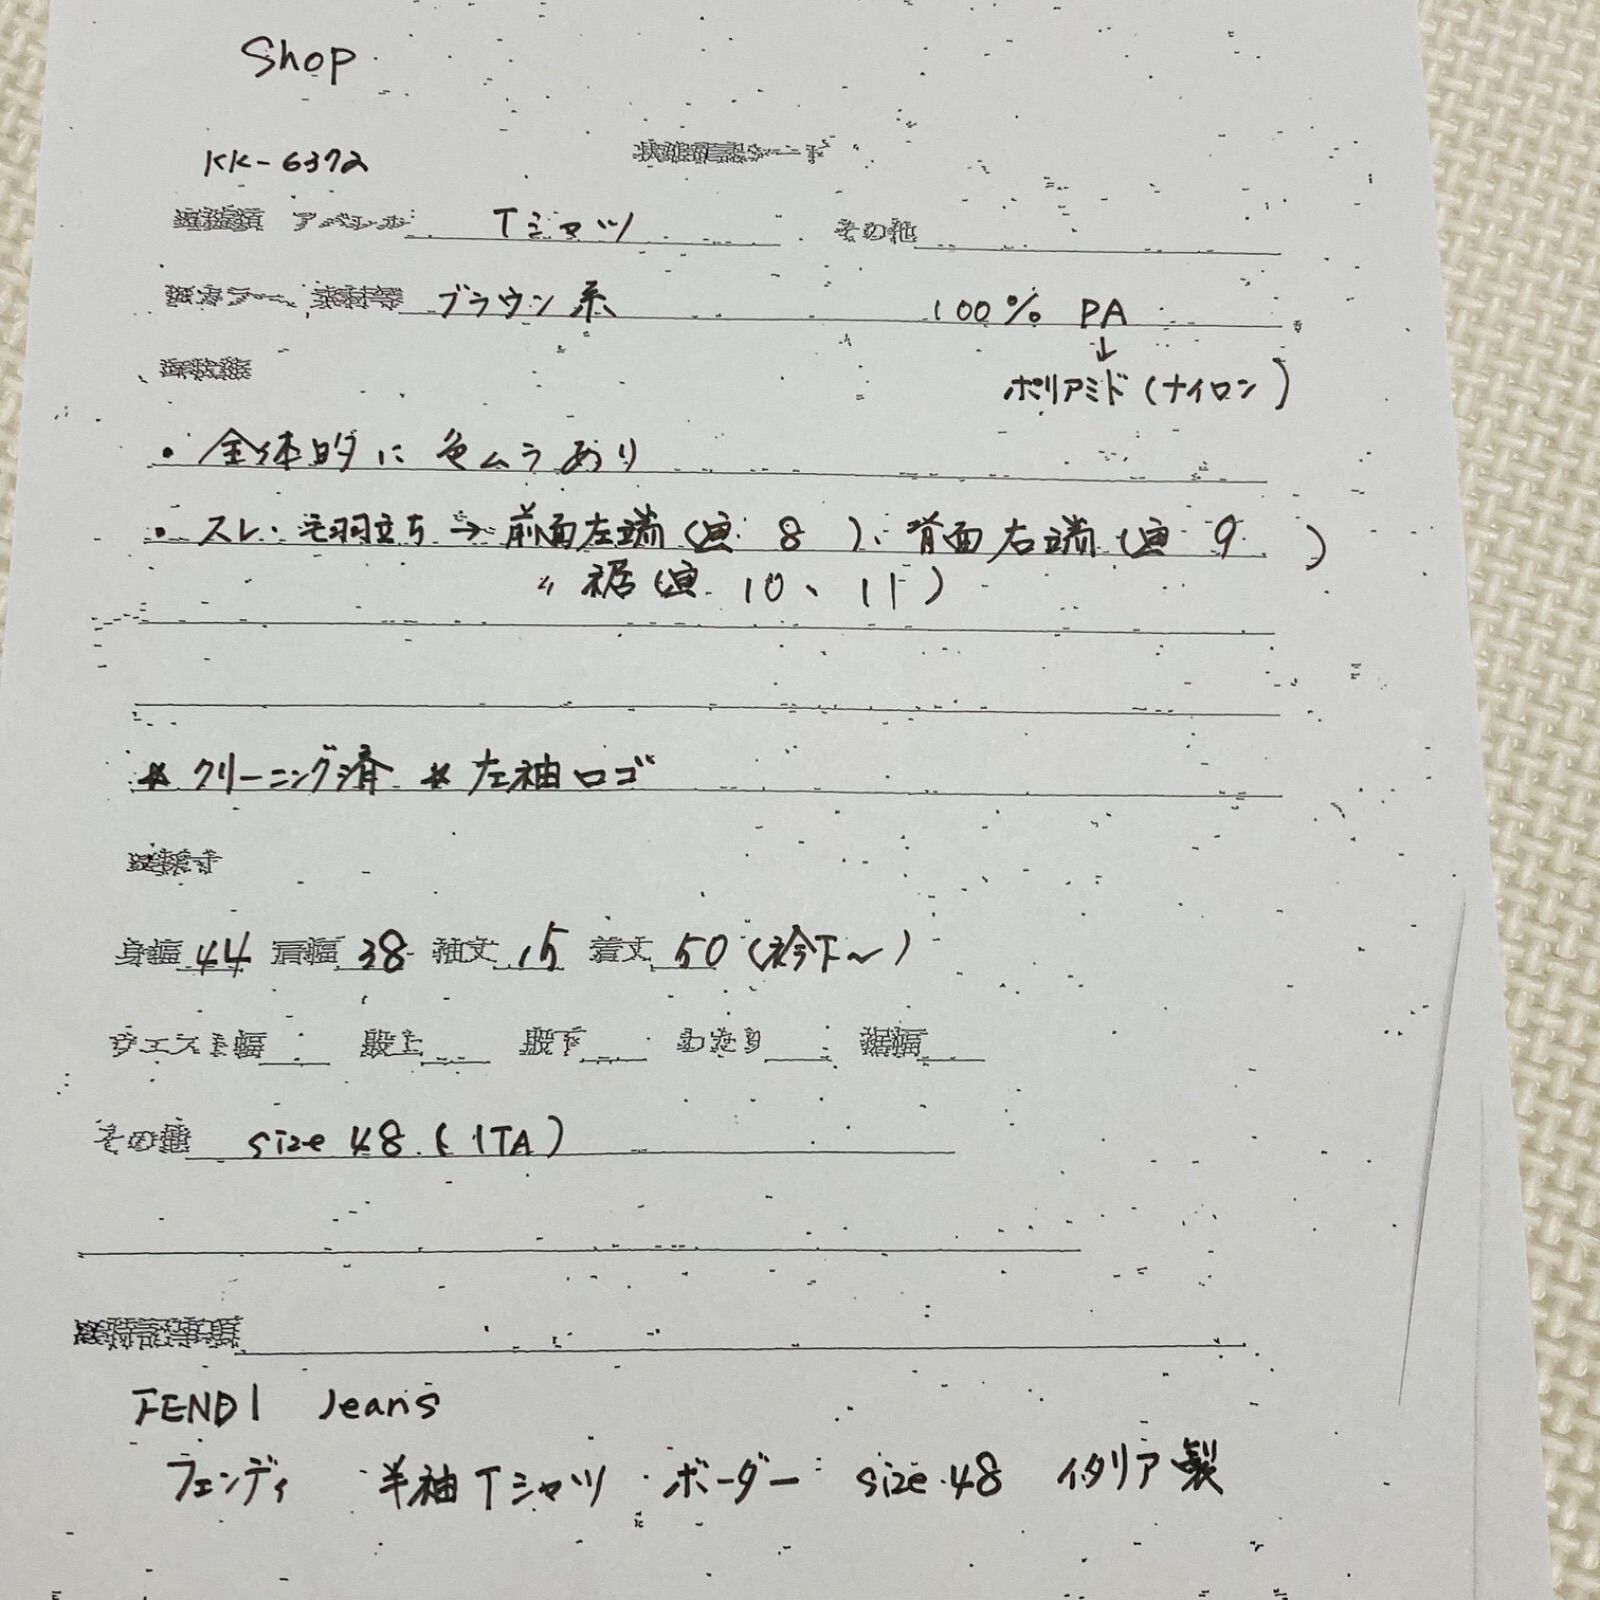 Shop
KK-6372
状態確認シート
アパレル Tシャツ その他
カラー、素材等 ブラウン系 100% PA
↓
ポリアミド(ナイロン)
・全体的に色ムラあり
・スレ・毛羽立ち→前面左端(画 8 )、背面右端(画 9 )
〃裾(画 10、11)
* クリーニング済 * 左袖ロゴ
採寸
身幅 44 肩幅 38 袖丈 15 着丈 50 (衿下〜)
ウエスト幅 股上 股下 わたり 裾幅
その他 size 48 (ITA)
特記事項
FENDI Jeans
フェンディ 半袖Tシャツ ボーダー size 48 イタリア製